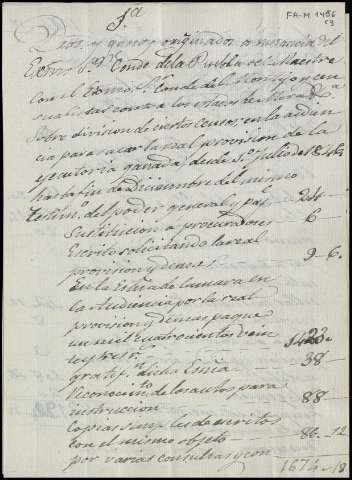 J.a
FA-M 1456
Dros. y ganos. originados a instancia del
Exmo. Sr. Conde de la Puebla del Maestre
con el Exmo. Sr. Conde del Montijo y en
sus listas contra los estados de
Sobre division de ciertos censos, en la audien
cia para sacar la real provision de la
ejecutoria ganada, desde 1.o julio de 1848
hasta fin de Diciembre del mismo
testim.o del poder general y pa 24
Sustitucion a procuradores 6
Escrito solicitando la real
provision y demas 9 - 6.
En la Escña. de camara en
la Audiencia por la real
provision y demas pague
un mil cuatrocientos vein
te y tres 1423 -
gratif.n dicha Escña. 38
Reconocim.to de los autos para
instruccion 88
Copias simples de escritos
con el mismo objeto 86 - 12
por varias consultas y con
1674 - 18